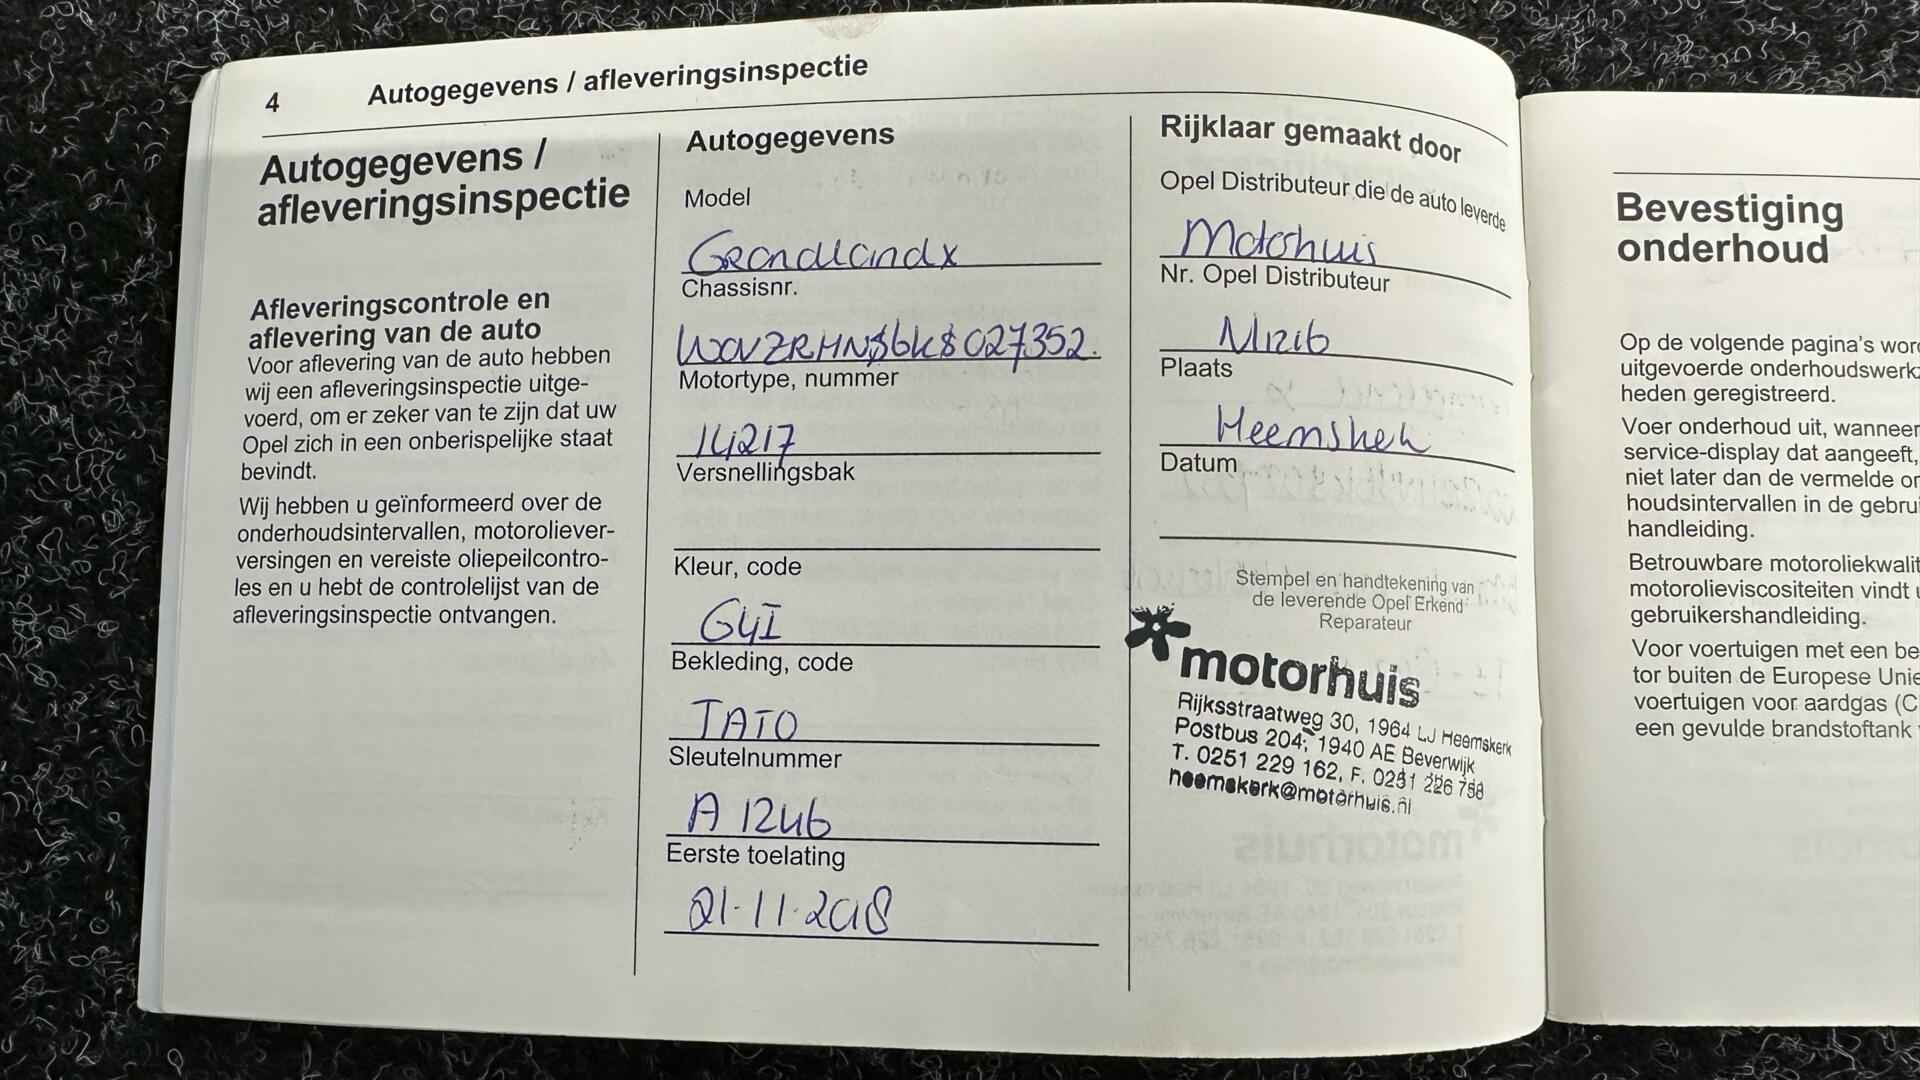 4
Autogegevens / afleveringsinspectie
Autogegevens /
afleveringsinspectie
Afleveringscontrole en
aflevering van de auto
Voor aflevering van de auto hebben
wij een afleveringsinspectie uitge-
voerd, om er zeker van te zijn dat uw
Opel zich in een onberispelijke staat
bevindt.
Wij hebben u geïnformeerd over de
onderhoudsintervallen, motoroliever-
versingen en vereiste oliepeilcontro-
les en u hebt de controlelijst van de
afleveringsinspectie ontvangen.
Autogegevens
Model
Grandlandx
Chassisnr.
Motortype, nummer
14217
Versnellingsbak
Kleur, code
G4I
Bekleding, code
TATO
Sleutelnummer
A 1246
Eerste toelating
21-11-2018
Rijklaar gemaakt door
Opel Distributeur die de auto leverde
Motorhuis
Nr. Opel Distributeur
Plaats
Heemskerk
Datum
Stempel en handtekening van
de leverende Opel Erkend
Reparateur
motorhuis
Rijksstraatweg 30, 1964 LJ Heemskerk
Postbus 204, 1940 AE Beverwijk
T. 0251 229 162, F. 0251 226 758
heemskerk@motorhuis.nl
Bevestiging
onderhoud
Op de volgende pagina's
uitgevoerde
heden geregistreerd.
Voer onderhoud uit, wanneer
service-display dat aangeeft,
niet later dan de vermelde
houdsintervallen in de
handleiding.
Betrouwbare
motorolieviscositeiten vindt
gebruikershandleiding.
Voor voertuigen met een
tor buiten de Europese Unie
voertuigen voor aardgas
een gevulde brandstoftank